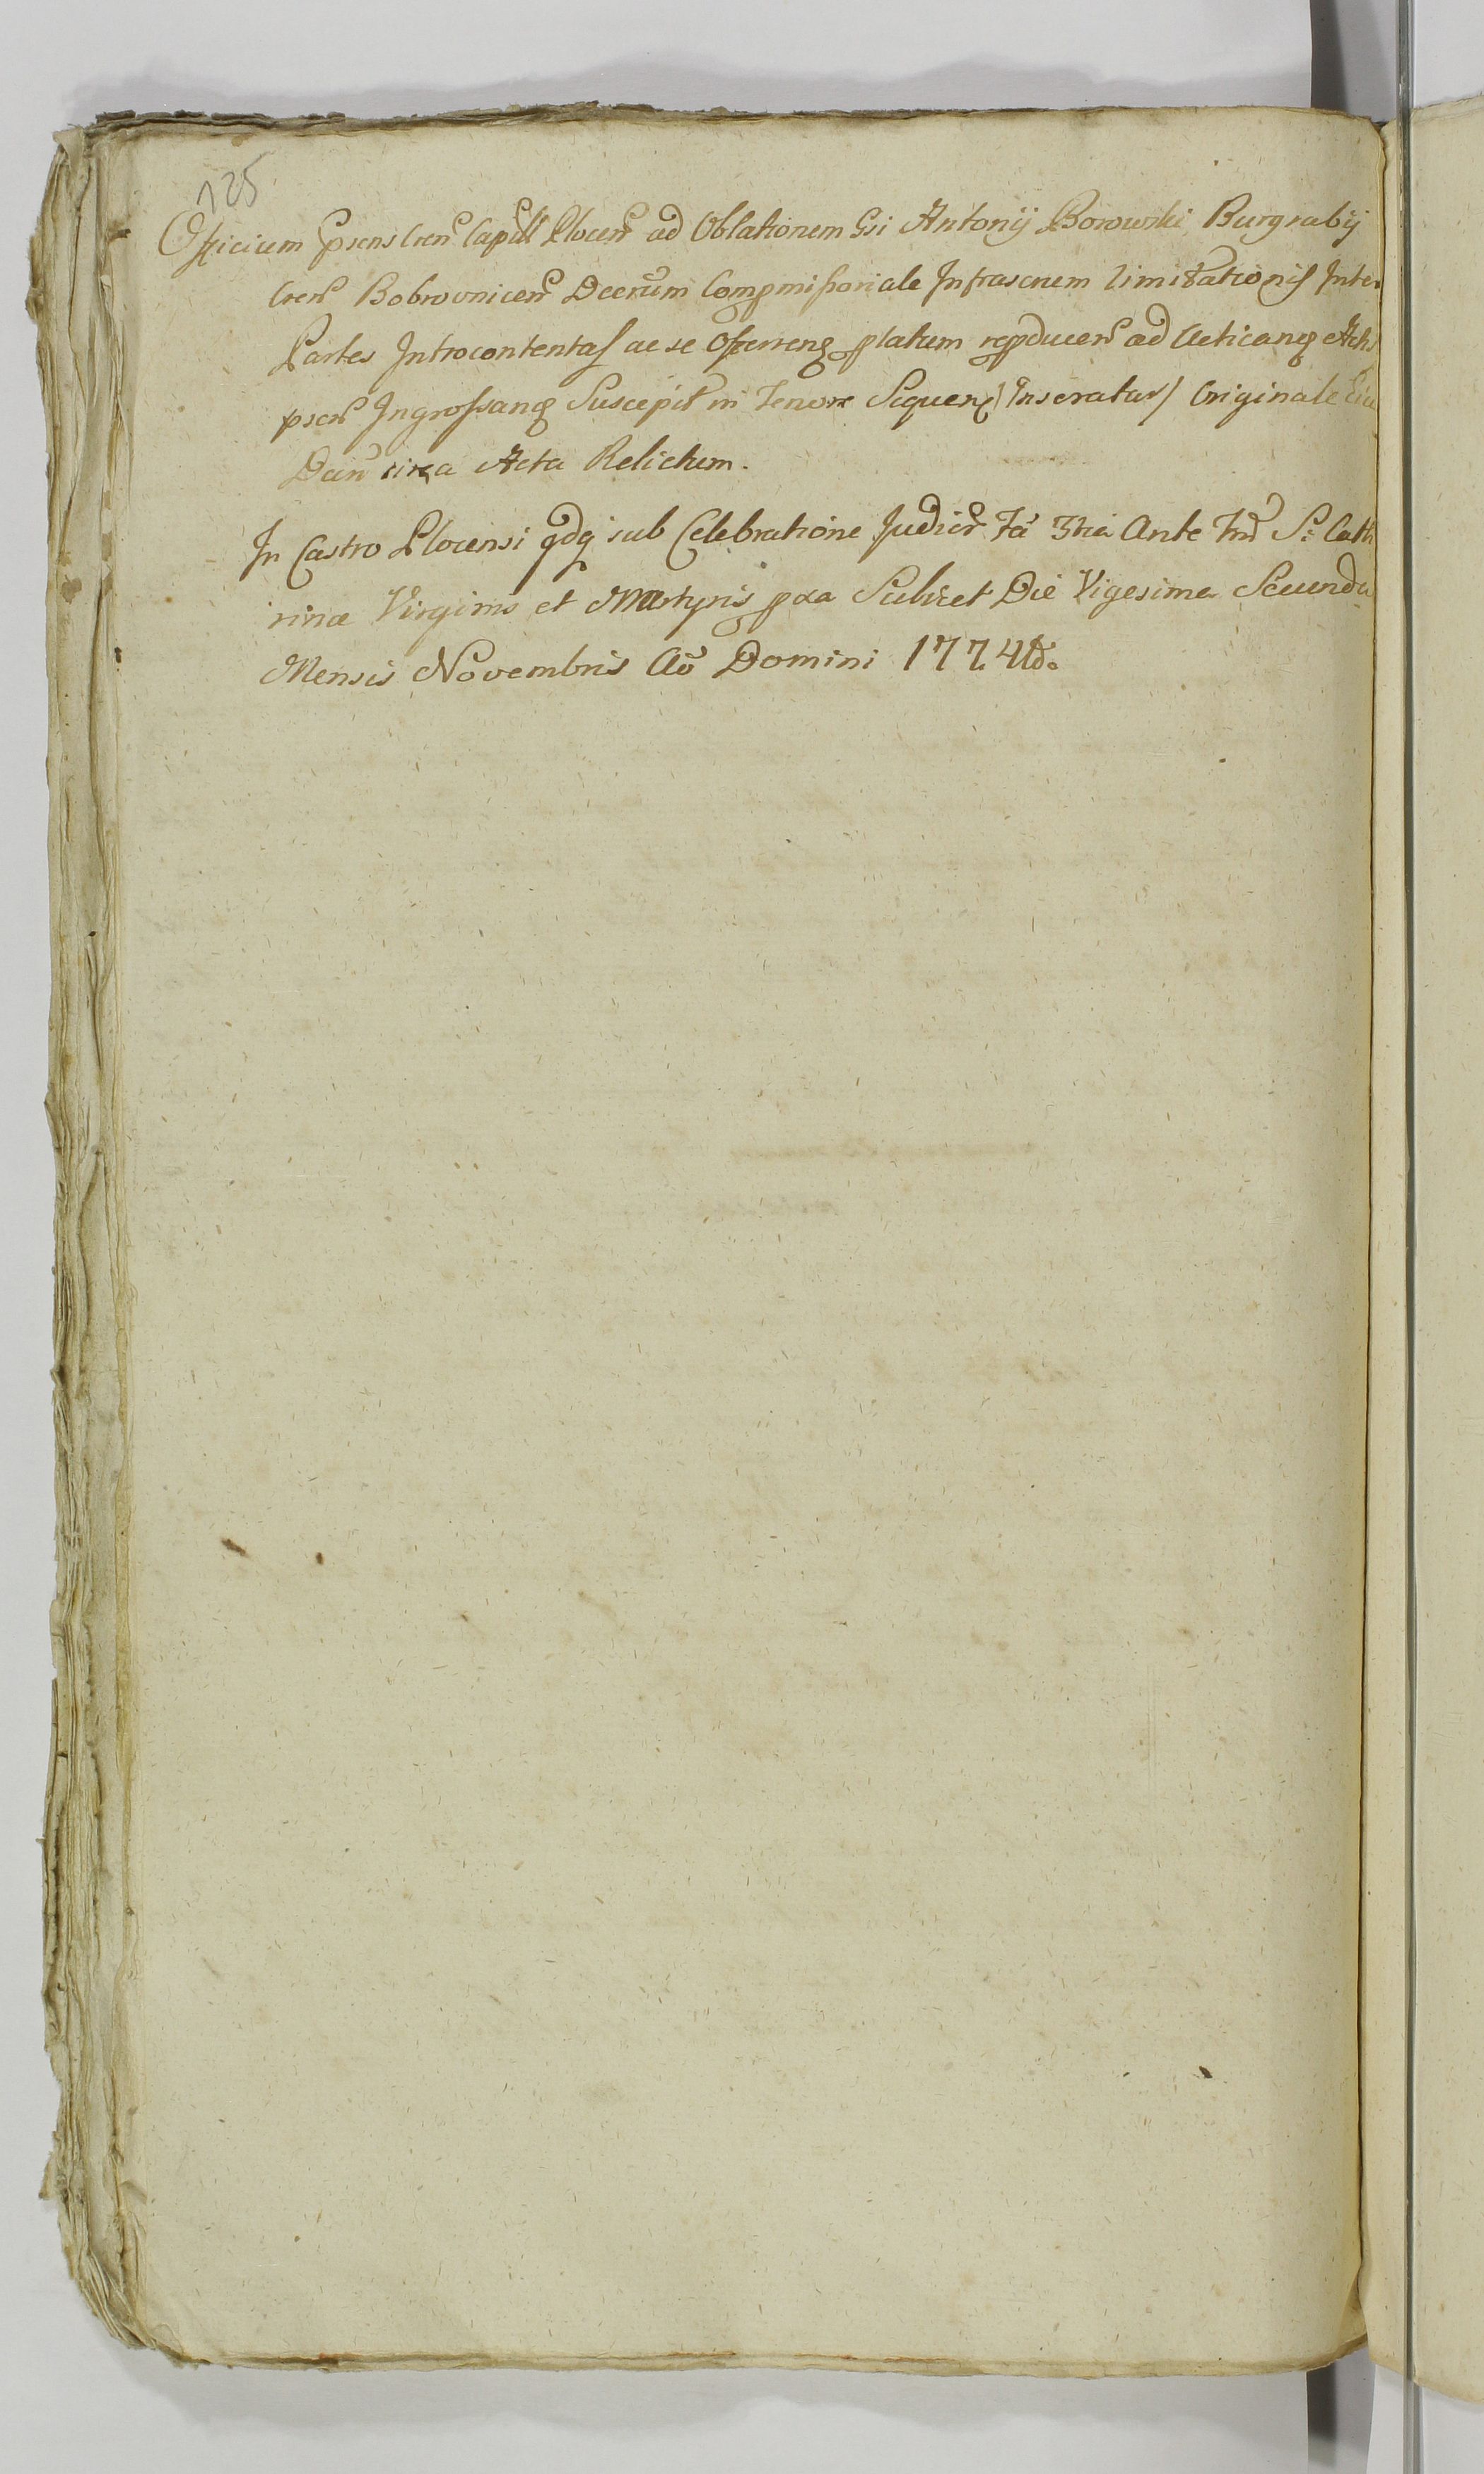 125
Officium Prsens Cren Capitll Plocen ad Oblationem Gsi Antonij Borowski Burgrabij
Cren Bobrovnicen Decrum Compmissoriale Infrascrum Limitationis Inter
Partes Introcontentas ac se Offerreng platum reproducen ad Acticang Actis
prsen Ingrossang Suscepit in Tenore Sequen / Inseratur / Originale
circa Acta Relictum.
In Castro Plocensi qdq sub Celebratione Judicior Fa 3tia Ante Fm S: Catha
rinæ Virginis et Martyris pxa Scilicet Die Vigesima Secunda
Mensis Novembris Ao Domini 1774to.